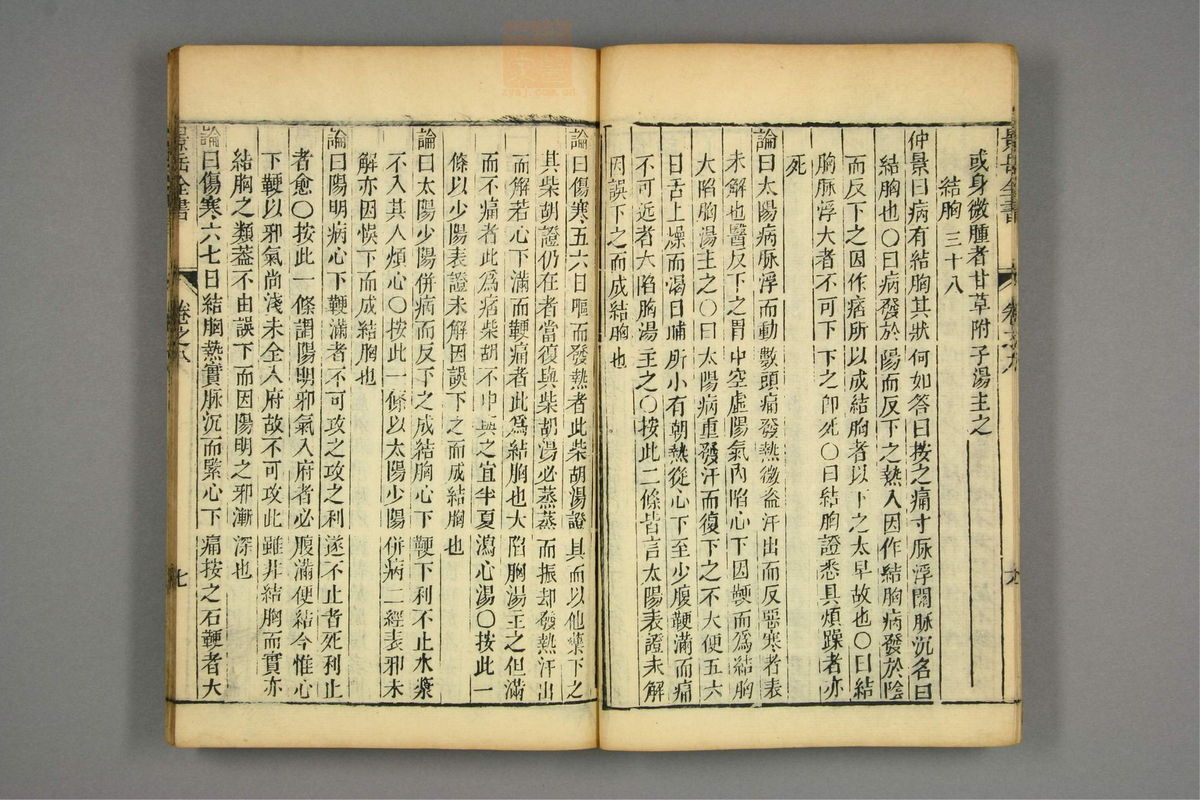 或身微腫者甘草附子湯主之
結胸 三十八
仲景曰病有結胸其狀何如答曰按之痛寸脉浮關脉沉名曰
結胸也〇曰病發於陽而反下之熱入因作結胸病發於陰
而反下之因作痞所以成結胸者以下之太早故也〇曰結
胸脉浮大者不可下下之卽死〇曰結胸證悉具煩躁者亦
死
論曰太陽病脉浮而動數頭痛發熱微盗汗出而反惡寒者表
未解也醫反下之胃中空虛陽氣內陷心下因鞕而爲結胸
大陷胸湯主之〇曰太陽病重發汗而復下之不大便五六
日舌上燥而渴日晡所小有朝熱從心下至少腹鞕滿而痛
不可近者大陷胸湯主之〇按此二條皆言太陽表證未解
因誤下之而成結胸也
論曰傷寒五六日嘔而發熱者此柴胡湯證具而以他藥下之
其柴胡證仍在者當復與柴胡湯必蒸蒸而振却發熱汗出
而解若心下滿而鞕痛者此爲結胸也大陷胸湯主之但滿
而不痛者此爲痞柴胡不中與之宜半夏瀉心湯〇按此一
條以少陽表證未解因誤下之而成結胸也
論曰太陽少陽併病而反下之成結胸心下鞕下利不止水漿
不入其人煩心〇按此一條以太陽少陽併病二經表邪未
解亦因悞下而成結胸也
論曰陽明病心下鞕滿者不可攻之攻之利遂不止者死利止
者愈〇按此一條謂陽明邪氣入府者必腹滿便結今惟心
下鞕以邪氣尚淺未全入府故不可攻此雖非結胸而實亦
結胸之類葢不由誤下而因陽明之邪漸深也
論曰傷寒六七日結胸熱實脉沉而緊心下痛按之石鞕者大
景岳全書
卷之八
七